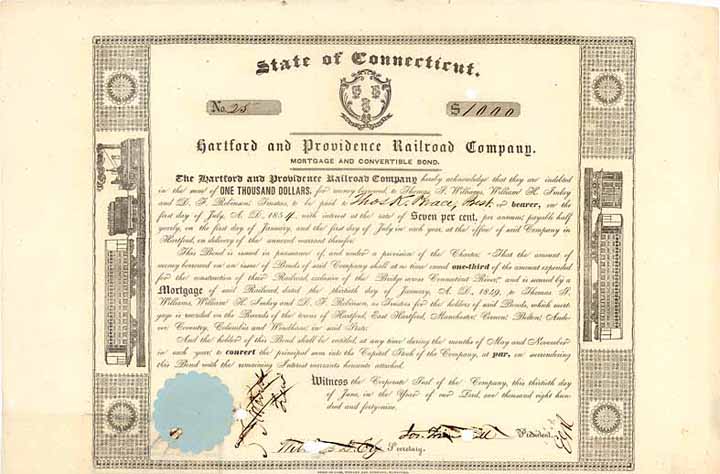 State of Connecticut.
No. 25
$ 1000
Hartford and Providence Railroad Company.
MORTGAGE AND CONVERTIBLE BOND.
The Hartford and Providence Railroad Company hereby acknowledge that they are indebted
in the sum of ONE THOUSAND DOLLARS, for money borrowed, to Thomas S. Williams, William H. Imlay
and D. F. Robinson, Trustees, to be paid to Thos K. Brace, Prest. or bearer, on the
first day of July, A. D. 1854, with interest at the rate of Seven per cent. per annum, payable half
yearly, on the first day of January, and the first day of July in each year, at the office of said Company in
Hartford, on delivery of the annexed warrant therefor.
This Bond is issued in pursuance of, and under a provision of the Charter, "That the amount of
money borrowed on an issue of Bonds of said Company shall at no time exceed one-third of the amount expended
for the construction of their Railroad, exclusive of the Bridge across Connecticut River," and is secured by a
Mortgage of said Railroad, dated the thirtieth day of January, A. D. 1849, to Thomas S.
Williams, William H. Imlay and D. F. Robinson, as Trustees for the holders of said Bonds, which mort-
gage is recorded on the Records of the towns of Hartford, East Hartford, Manchester, Vernon, Bolton, Ando-
ver, Coventry, Columbia and Windham, in said State.
And the holder of this Bond shall be entitled, at any time during the months of May and November
in each year, to convert the principal sum into the Capital Stock of the Company, at par, on surrendering
this Bond with the remaining Interest warrants hereunto attached.
Witness the Corporate Seal of the Company, this thirtieth day
of June, in the Year of our Lord, one thousand eight hun-
dred and forty-nine.
President.
Secretary.